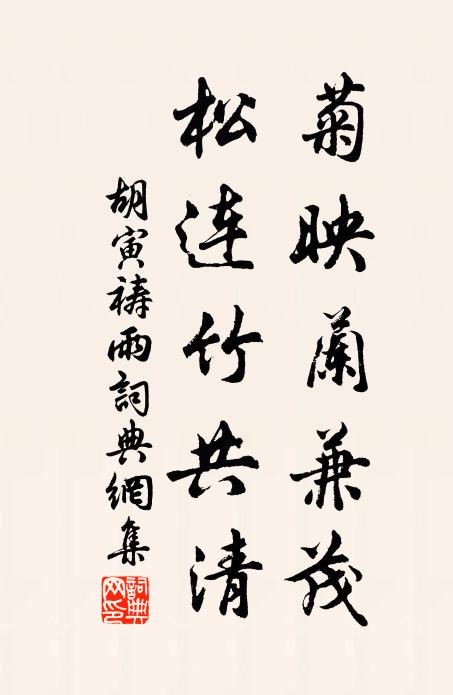 菊映蘭兼茂
松連竹共清
胡寅禱雨詞典網集
詞典网印